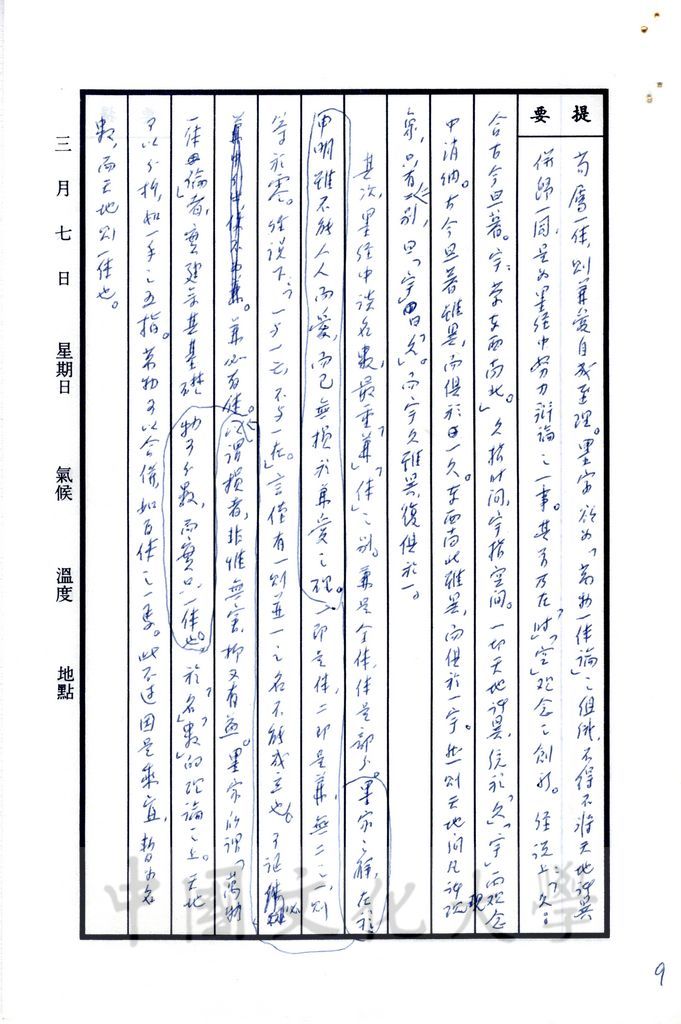 提要
萬屬一体,則兼愛自成至理。墨家欲為「萬物一体論」之組織,不得不將天地諸異
併歸一同,是為墨經中努力辯論之一事。其方乃在「時」「空」觀念之創新。經說上:「久:
合古今旦莫。宇:蒙東西南北。」久指時间,宇指空间。一切天地諸異,統於「久」「宇」兩观念
中消納。古今旦暮雖異,而俱於一久。東西南北雖異,而俱於一宇。然則天地间凡諸現
象,只有二別,曰「宇」曰「久」。而宇久雖異,復俱於一。
其次,墨經中談名數,最重「兼」「体」之別。兼是全体,体是部分。墨家之辭,在於
申明雖不能人人而愛,而已無損於兼愛之理。一即是体,二即是兼,無二之一,則
等於零。經說下:「一与一亡,不与一在。」言僅有一則並一之名不能成立也。可証体必
兼必有体。所謂損者,非惟無害,抑又有益。墨家所謂「萬物
一体」論者,實建立其基礎於「名」「數」的理論之上。天地
物可分數,而實只一体也。
可以分拆,如一手之五指。萬物可以合併,如百体之一身。此不过因是乘宜,暫为名
數,而天地則一体也。
三月七日 星期日 氣候 溫度 地點
中國文化大學
9